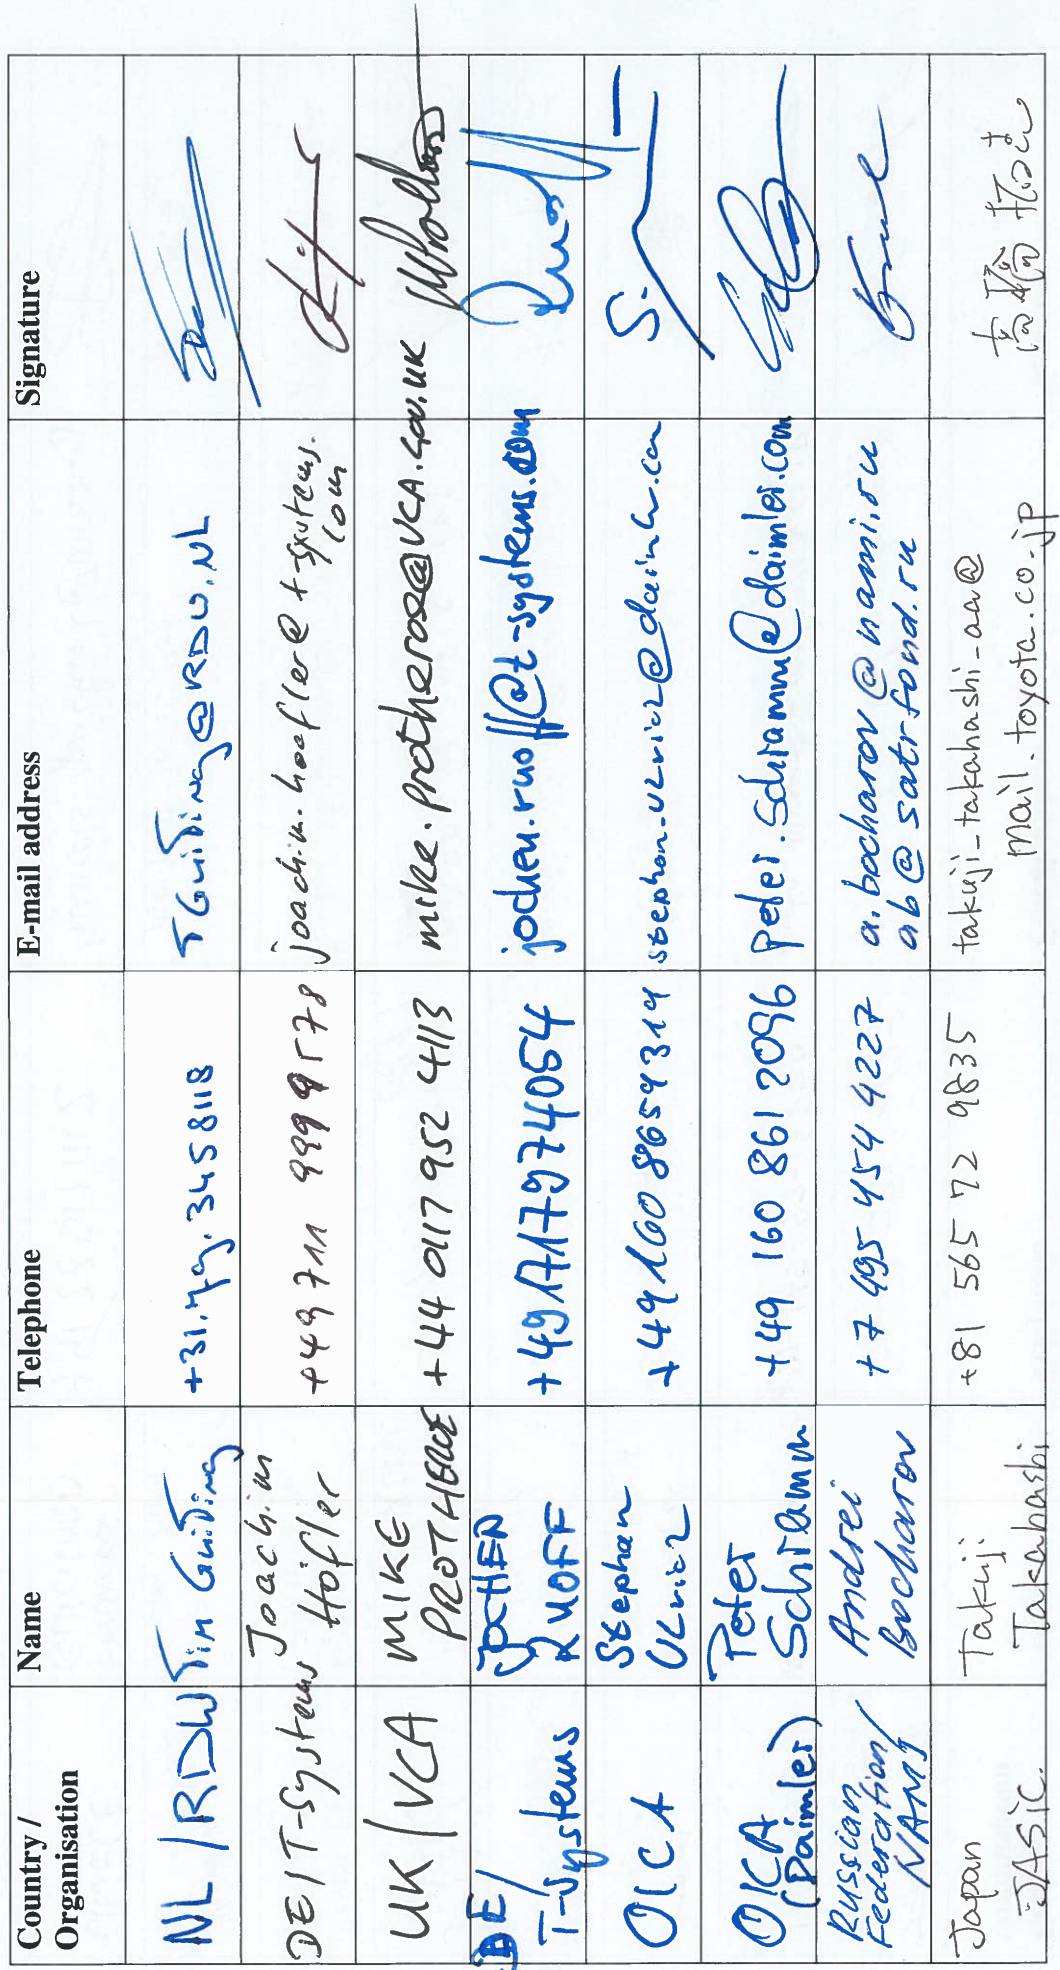 Country / Organisation	Name	Telephone	E-mail address	Signature
NL / RDW	Tim Guiting	+31.79.3458118	TGuiting@RDW.NL
DE / T-Systems	Joachim Höfler	+49 711 999 9578	joachim.hoefler@t-systems.com
UK / VCA	MIKE PROTHEROE	+44 0117 952 4113	mike.protheroe@VCA.gov.uk
DE / T-Systems	JOCHEN RUOFF	+491717974054	jochen.ruoff@t-systems.com	Ruoff
OICA	Stephan	+49 160 8659314
OICA (Daimler)	Peter Schramm	+49 160 861 2096	peter.schramm@daimler.com
Russian Federation / NAMI	Andrei Bocharov	+7 495 454 4227	a.bocharov@nami.ru
ab@satrfond.ru
Japan JASIC.	Takuji Takahashi	+81 565 72 9835	takuji_takahashi_aa@
mail.toyota.co.jp